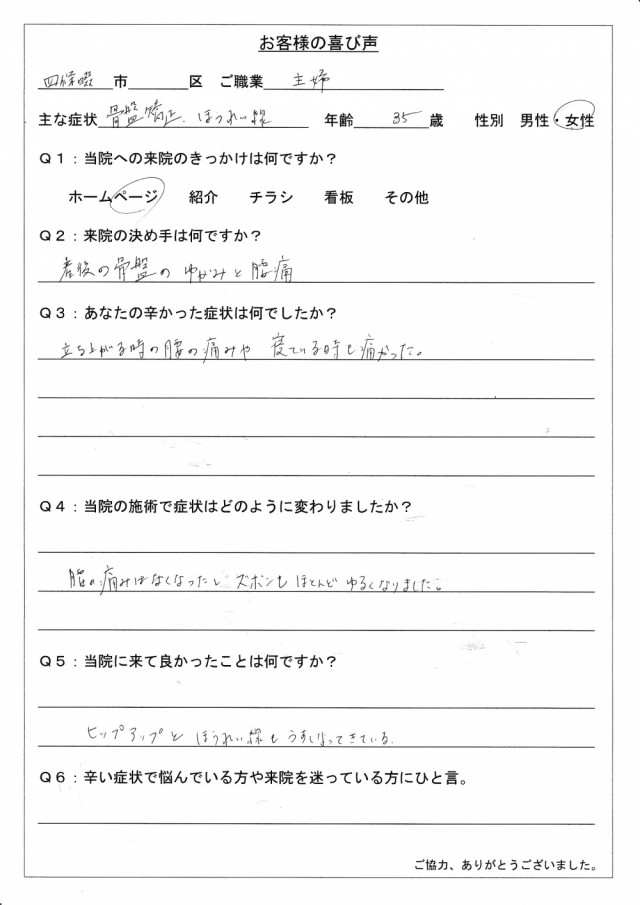 お客様の喜び声
四條畷市 区 ご職業 主婦
主な症状 骨盤矯正、ほうれい線 年齢 35 歳 性別 男性・女性
Q1：当院への来院のきっかけは何ですか？
ホームページ 紹介 チラシ 看板 その他
Q2：来院の決め手は何ですか？
産後の骨盤のゆがみと腰痛
Q3：あなたの辛かった症状は何でしたか？
立ち上がる時の腰の痛みや 寝ている時も痛かった。
Q4：当院の施術で症状はどのように変わりましたか？
腰の痛みはなくなったし ズボンもほとんどゆるくなりました。
Q5：当院に来て良かったことは何ですか？
ヒップアップと ほうれい線もうすくなってきている。
Q6：辛い症状で悩んでいる方や来院を迷っている方にひと言。
ご協力、ありがとうございました。